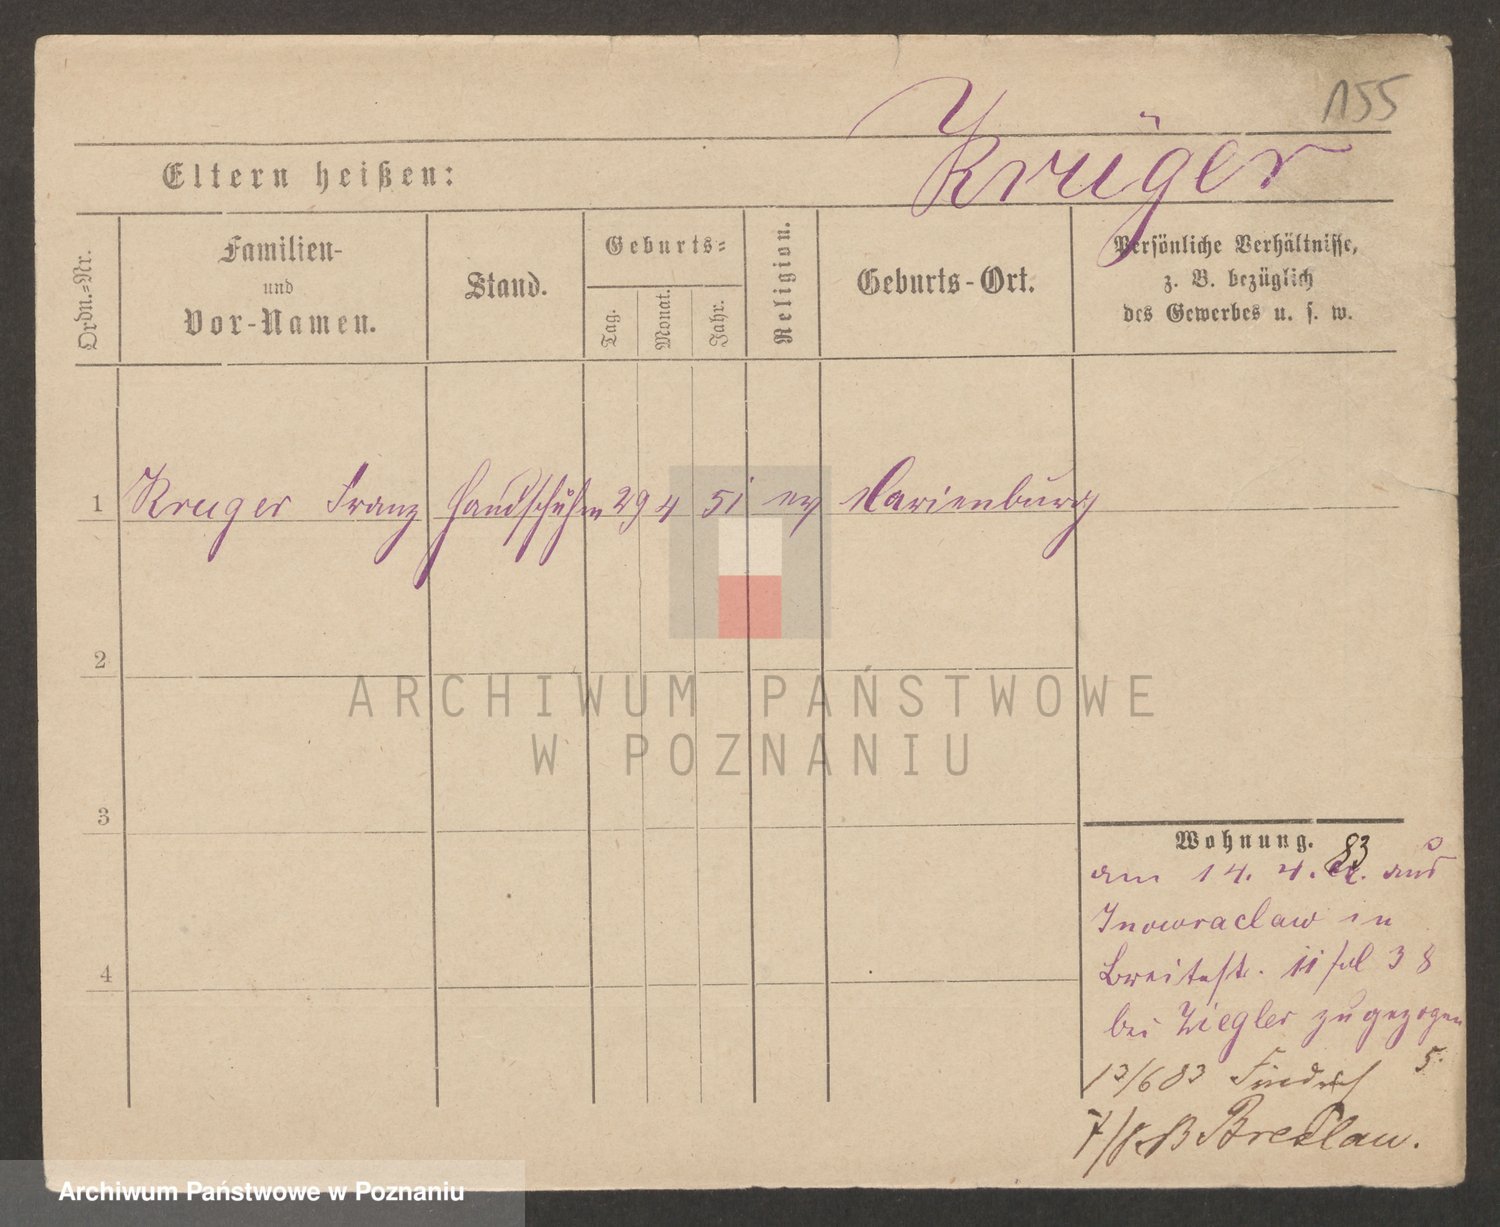 155
Krüger
Eltern heißen:
Ordn.=Nr.
Familien-
und
Vor-Namen.
Stand.
Geburts=
Tag.
Monat.
Jahr.
Religion.
Geburts-Ort.
Persönliche Verhältnisse,
z. B. bezüglich
des Gewerbes u. s. w.
1 Krueger Franz Handschuhm 29 4 51 ev Marienburg
2
3
4
ARCHIWUM PAŃSTWOWE
W POZNANIU
Wohnung.
am 14. 4. 83 aus
Inowraclaw in
Breitestr. 11 38
bei Ziegler zugezogen
13/6 83 5.
Breslau.
Archiwum Państwowe w Poznaniu